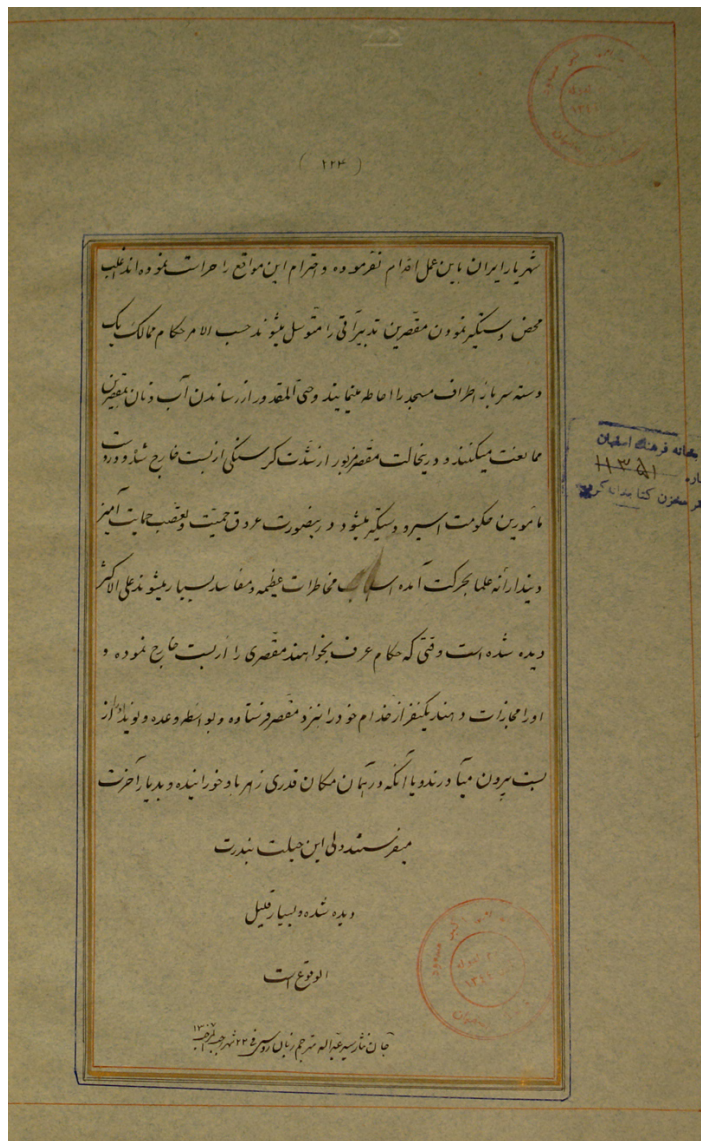 ( ۱۲۴ )
شهریار ایران باین عمل اقدام نفرموده و احترام این مواقع را حراست نموده‌اند اغلب
محض دستگیر نمودن مقصرین تدبیراتی را متوسل میشوند حسب الامر حکام ممالک یک
دسته سرباز اطراف مسجد را احاطه مینمایند و حتی المقدور از رساندن آب و نان بمقصرین
ممانعت میکنند و در ینحالت مقصر مزبور از شدت گرسنگی از بست خارج شده و در دست
مأمورین حکومت اسیر و دستگیر میشود و در ینصورت عروق حمیت و تعصب حمایت آمیز
دیندارانه علما بحرکت آمده اسباب مخاطرات عظیمه و مفاسد بسیار میشوند علی الاکثر
دیده شده است وقتی که حکام عرف بخواهند مقصری را از بست خارج نموده و
او را مجازات دهند یکنفر از خدام خود را نزد مقصر فرستاده و بواسطه وعده و نوید او را از
بست بیرون میآورند و یا آنکه در همان مکان قدری زهر باو خورانیده و بدیار آخرت
میفرستند ولی این حیلت بندرت
دیده شده و بسیار قلیل
الوقوع است
جان نثار سید عبدالله مترجم زبان روسی فی ۲۳ شهر رجب المرجب ۱۳۰۷
خانه فرهنگ اصفهان
۱۱۳۵۱